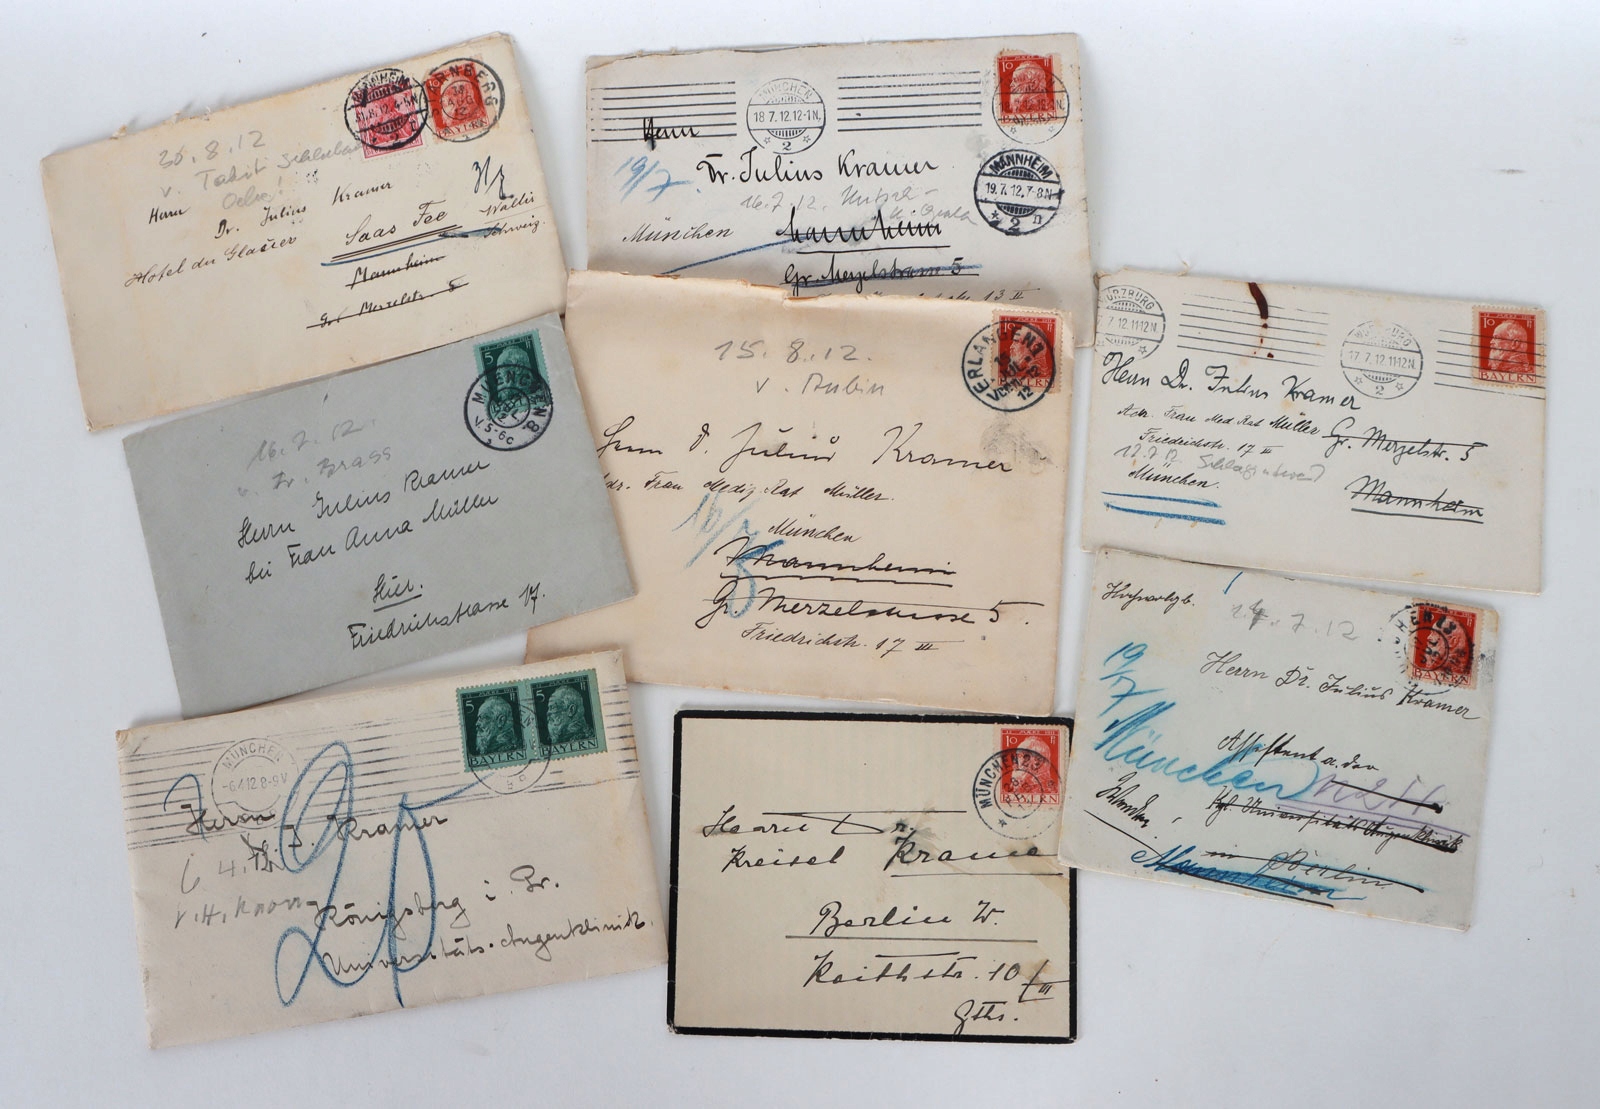 30.8.12
v.
Herrn
Dr. Julius Kramer
Hotel du Glacier
Saas Fee
Wallis
Schweiz
Mannheim
Gr. Merzelstr. 5
MANNHEIM
31.8.12.4-5N
NÜRNBERG
BAYERN
MÜNCHEN
18.7.12.12-1N.
2
10
BAYERN
MANNHEIM
19.7.12.7-8N
2 n
Herrn
19/7
Dr. Julius Kramer
16.7.12.
München
Mannheim
Gr. Merzelstrasse 5
13 II
5
MUENCHEN
V.5-6
16.7.12.
v. Fr. Brass
Herrn Julius Kramer
bei Frau Anna Müller
Hier.
Friedrichstrasse 17.
10
ERLANGEN 1
12
15.8.12.
v. Rubin
Herrn Dr. Julius Kramer
Adr. Frau Mediz. Rat Müller.
München
Mannheim
Gr. Merzelstrasse 5.
Friedrichstr. 17 III
WÜRZBURG
7.12.11-12N.
WÜRZBURG
17.7.12.11-12N.
2
10
BAYERN
Herrn Dr. Julius Kramer
Adr. Frau Med. Rat Müller
Gr. Merzelstr. 5
Friedrichstr. 17 III
München.
Mannheim
MÜNCHEN
-6.4.12 8-9V
5 5
BAYERN BAYERN
Herrn
Dr. J. Kramer
6 4. 12
v. H.
20
Königsberg i. Pr.
Universitäts-Augenklinik.
MÜNCHEN 23
10
Herrn Dr.
Kreisel Kramer
Berlin W.
Keithstr. 10/III
Gths.
BAYERN
14.7.12
19/7
Herrn Dr. Julius Kramer
Assistent a. der
München
Kgl. Universitäts Augenklinik
in Berlin
Mannheim